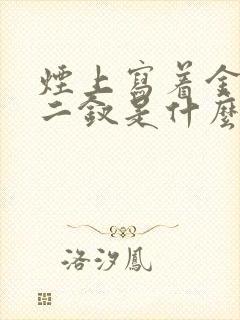 煙上寫着金
二釵是什麼
洛汐鳳